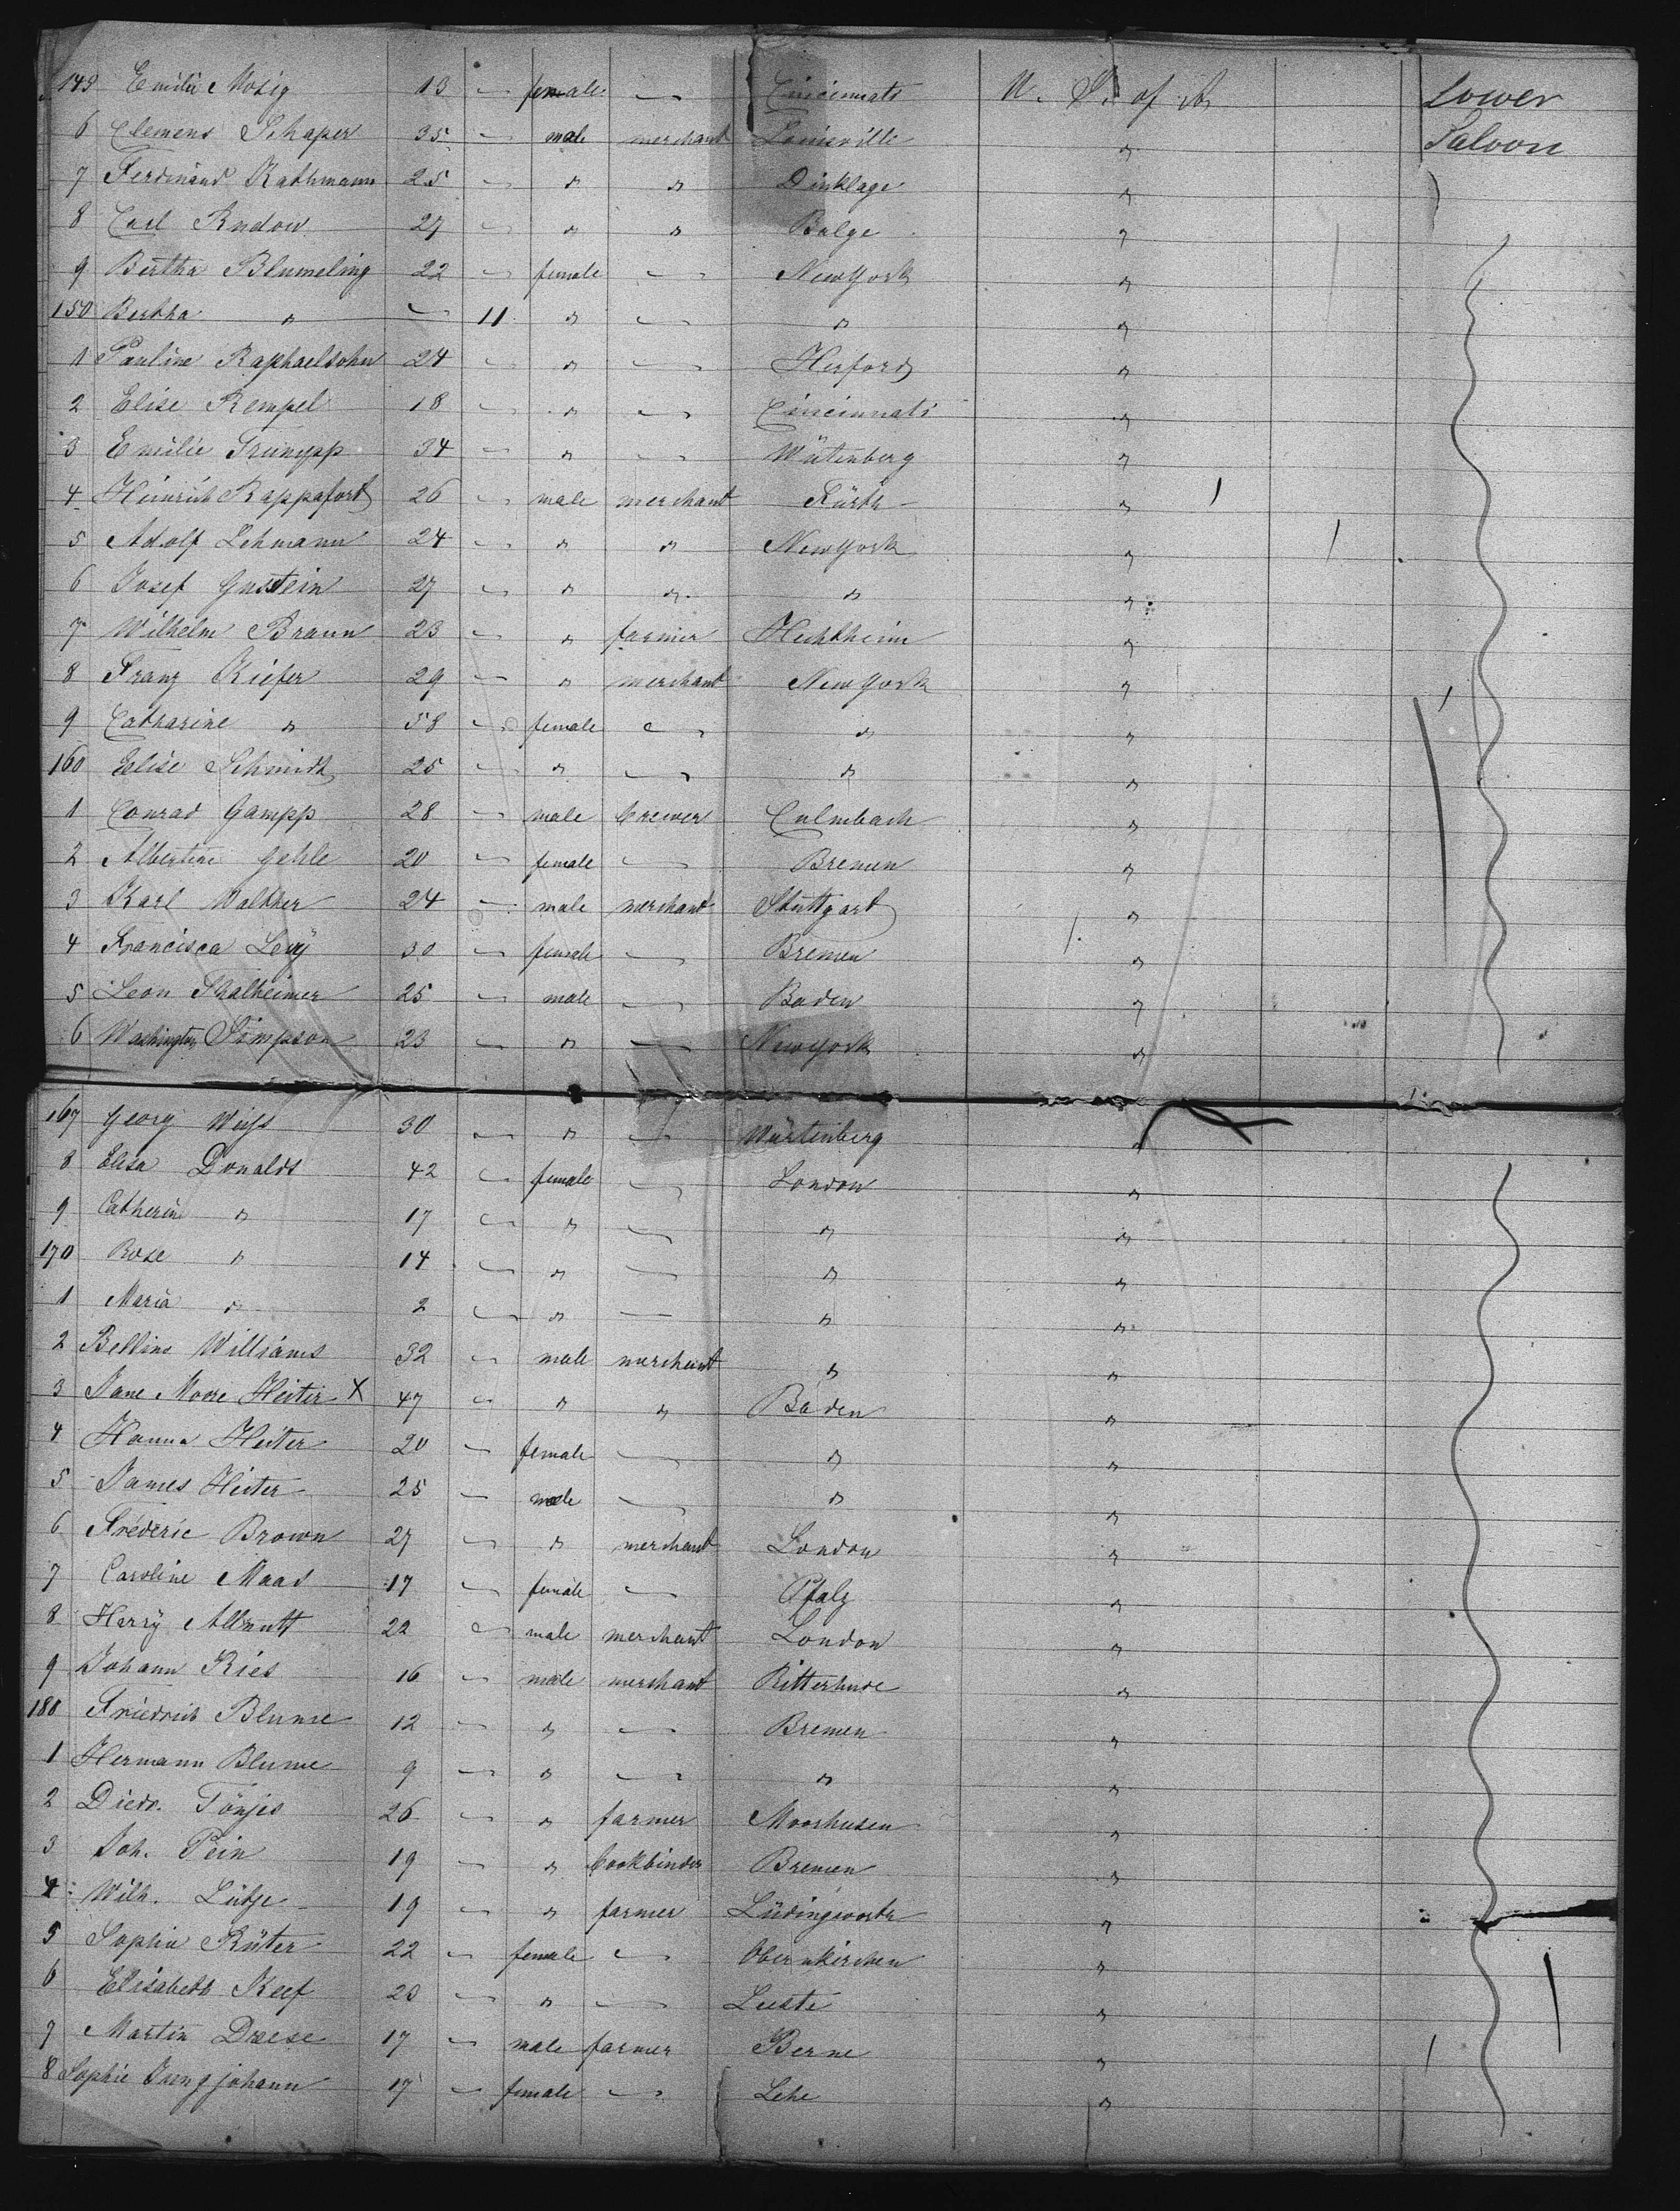 145 Emilie Mosig 13 — female — Cincinnati U. S. of A. Lower
6 Clemens Schaper 35 — male merchant Louisville " Saloon
7 Ferdinand Kathmann 25 — " " Dinklage "
8 Carl Rudow 27 — " " Balge "
9 Bertha Blumeling 22 — female — New York "
150 Bertha " — 11 " — " "
1 Pauline Raphaelsohn 24 — " — Herford "
2 Elise Rempel 18 — " — Cincinnati "
3 Emilie Trumpp 34 — " — Würtenberg "
4 Heinrich Rappafort 26 — male merchant Fürth "
5 Adolf Lehmann 24 — " " New York "
6 Josef Gustein 27 — " " " "
7 Wilhelm Braun 23 — " farmer Hechtheim "
8 Franz Kiefer 29 — " merchant New York "
9 Catharine " 58 — female — " "
160 Elise Schmidt 25 — " — " "
1 Conrad Gampp 28 — male brewer Culmbach "
2 Albertine Gehle 20 — female — Bremen "
3 Karl Walther 24 — male merchant Stuttgart "
4 Francisca Levÿ 30 — female — Bremen "
5 Leon Thalheimer 25 — male — Baden "
6 Washington Simpson 23 — " — New York "
167 Georg Weiss 30 — " — Würtenberg "
8 Elisa Donalds 42 — female — London "
9 Catherin " 17 — " — " "
170 Rose " 14 — " — " "
1 Maria " 2 — " — " "
2 Bellins Williams 32 — male merchant " "
3 Jane Moore Heiter X 47 — " " Baden "
4 Hanna Heiter 20 — female — " "
5 James Heiter 25 — male — " "
6 Frederic Brown 27 — " merchant London "
7 Caroline Maas 17 — female — Pfalz "
8 Harrÿ Allnutt 22 — male merchant London "
9 Johann Ries 16 — male merchant Ritterhude "
180 Friedrich Blume 12 — " — Bremen "
1 Hermann Blume 9 — " — " "
2 Diedr. Tönjes 26 — " farmer Moorhusen "
3 Joh. Pein 19 — " bookbinder Bremen "
4 Wilh. Lütje 19 — " farmer Lüdingworth "
5 Sophie Rüter 22 — female — Obernkirchen "
6 Elisabeth Keef 20 — " — Leeste "
7 Martin Drese 17 — male farmer Berne "
8 Sophie Jungjohann 17 — female — Lehe "